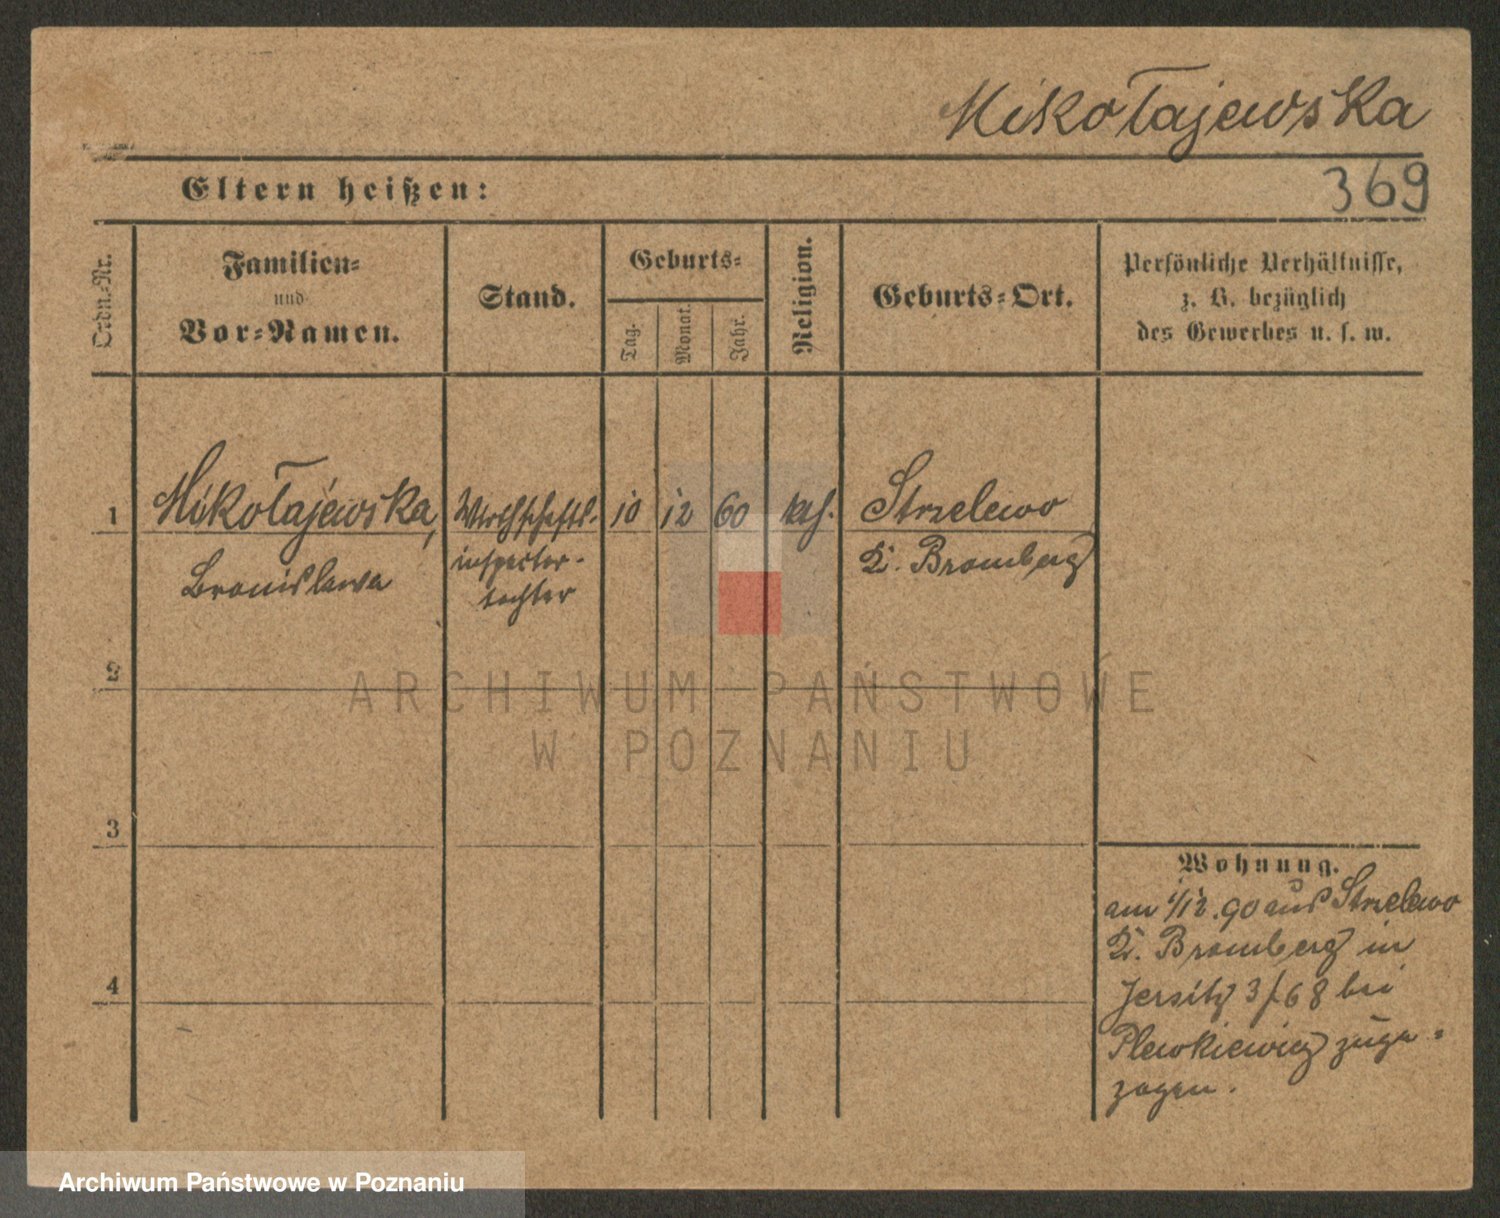 Mikołajewska
Eltern heißen:
369
Ordn.-Nr.
Familien-
und
Vor-Namen.
Stand.
Geburts-
Tag.
Monat.
Jahr.
Religion.
Geburts-Ort.
Persönliche Verhältnisse,
z. B. bezüglich
des Gewerbes u. s. w.
1
Mikołajewska,
Bronislawa
Wirthschafts-
inspector-
tochter
10
12
60
kth.
Strzelewo
K. Bromberg
2
3
4
Wohnung.
am 1/12.90 aus Strzelewo
K. Bromberg in
Jersitz 3/68 bei
Plewkiewicz zuge-
zogen.
ARCHIWUM PAŃSTWOWE
W POZNANIU
Archiwum Państwowe w Poznaniu